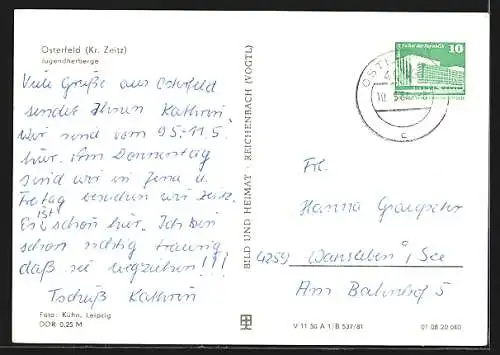 Osterfeld (Kr. Zeitz)
Jugendherberge
Viele Grüße aus Osterfeld
sendet Ihnen Kathrin.
Wir sind vom 9.5.-11.5.
hier. Am Donnerstag
sind wir in Jena u.
Freitag besuchen wir
Es ist schon hier. Ich bin
schon richtig traurig
daß sie wegziehen!!!
Tschüß Kathrin
Foto: Kühn, Leipzig
DDR 0,25 M
BILD UND HEIMAT · REICHENBACH (VOGTL)
V 11 50 A 1/B 537/81
01 08 20 060
10
OSTERFELD
10. 5.84
c
Fr.
Hanna
4259 Wansleben i. See
Am Bahnhof 5